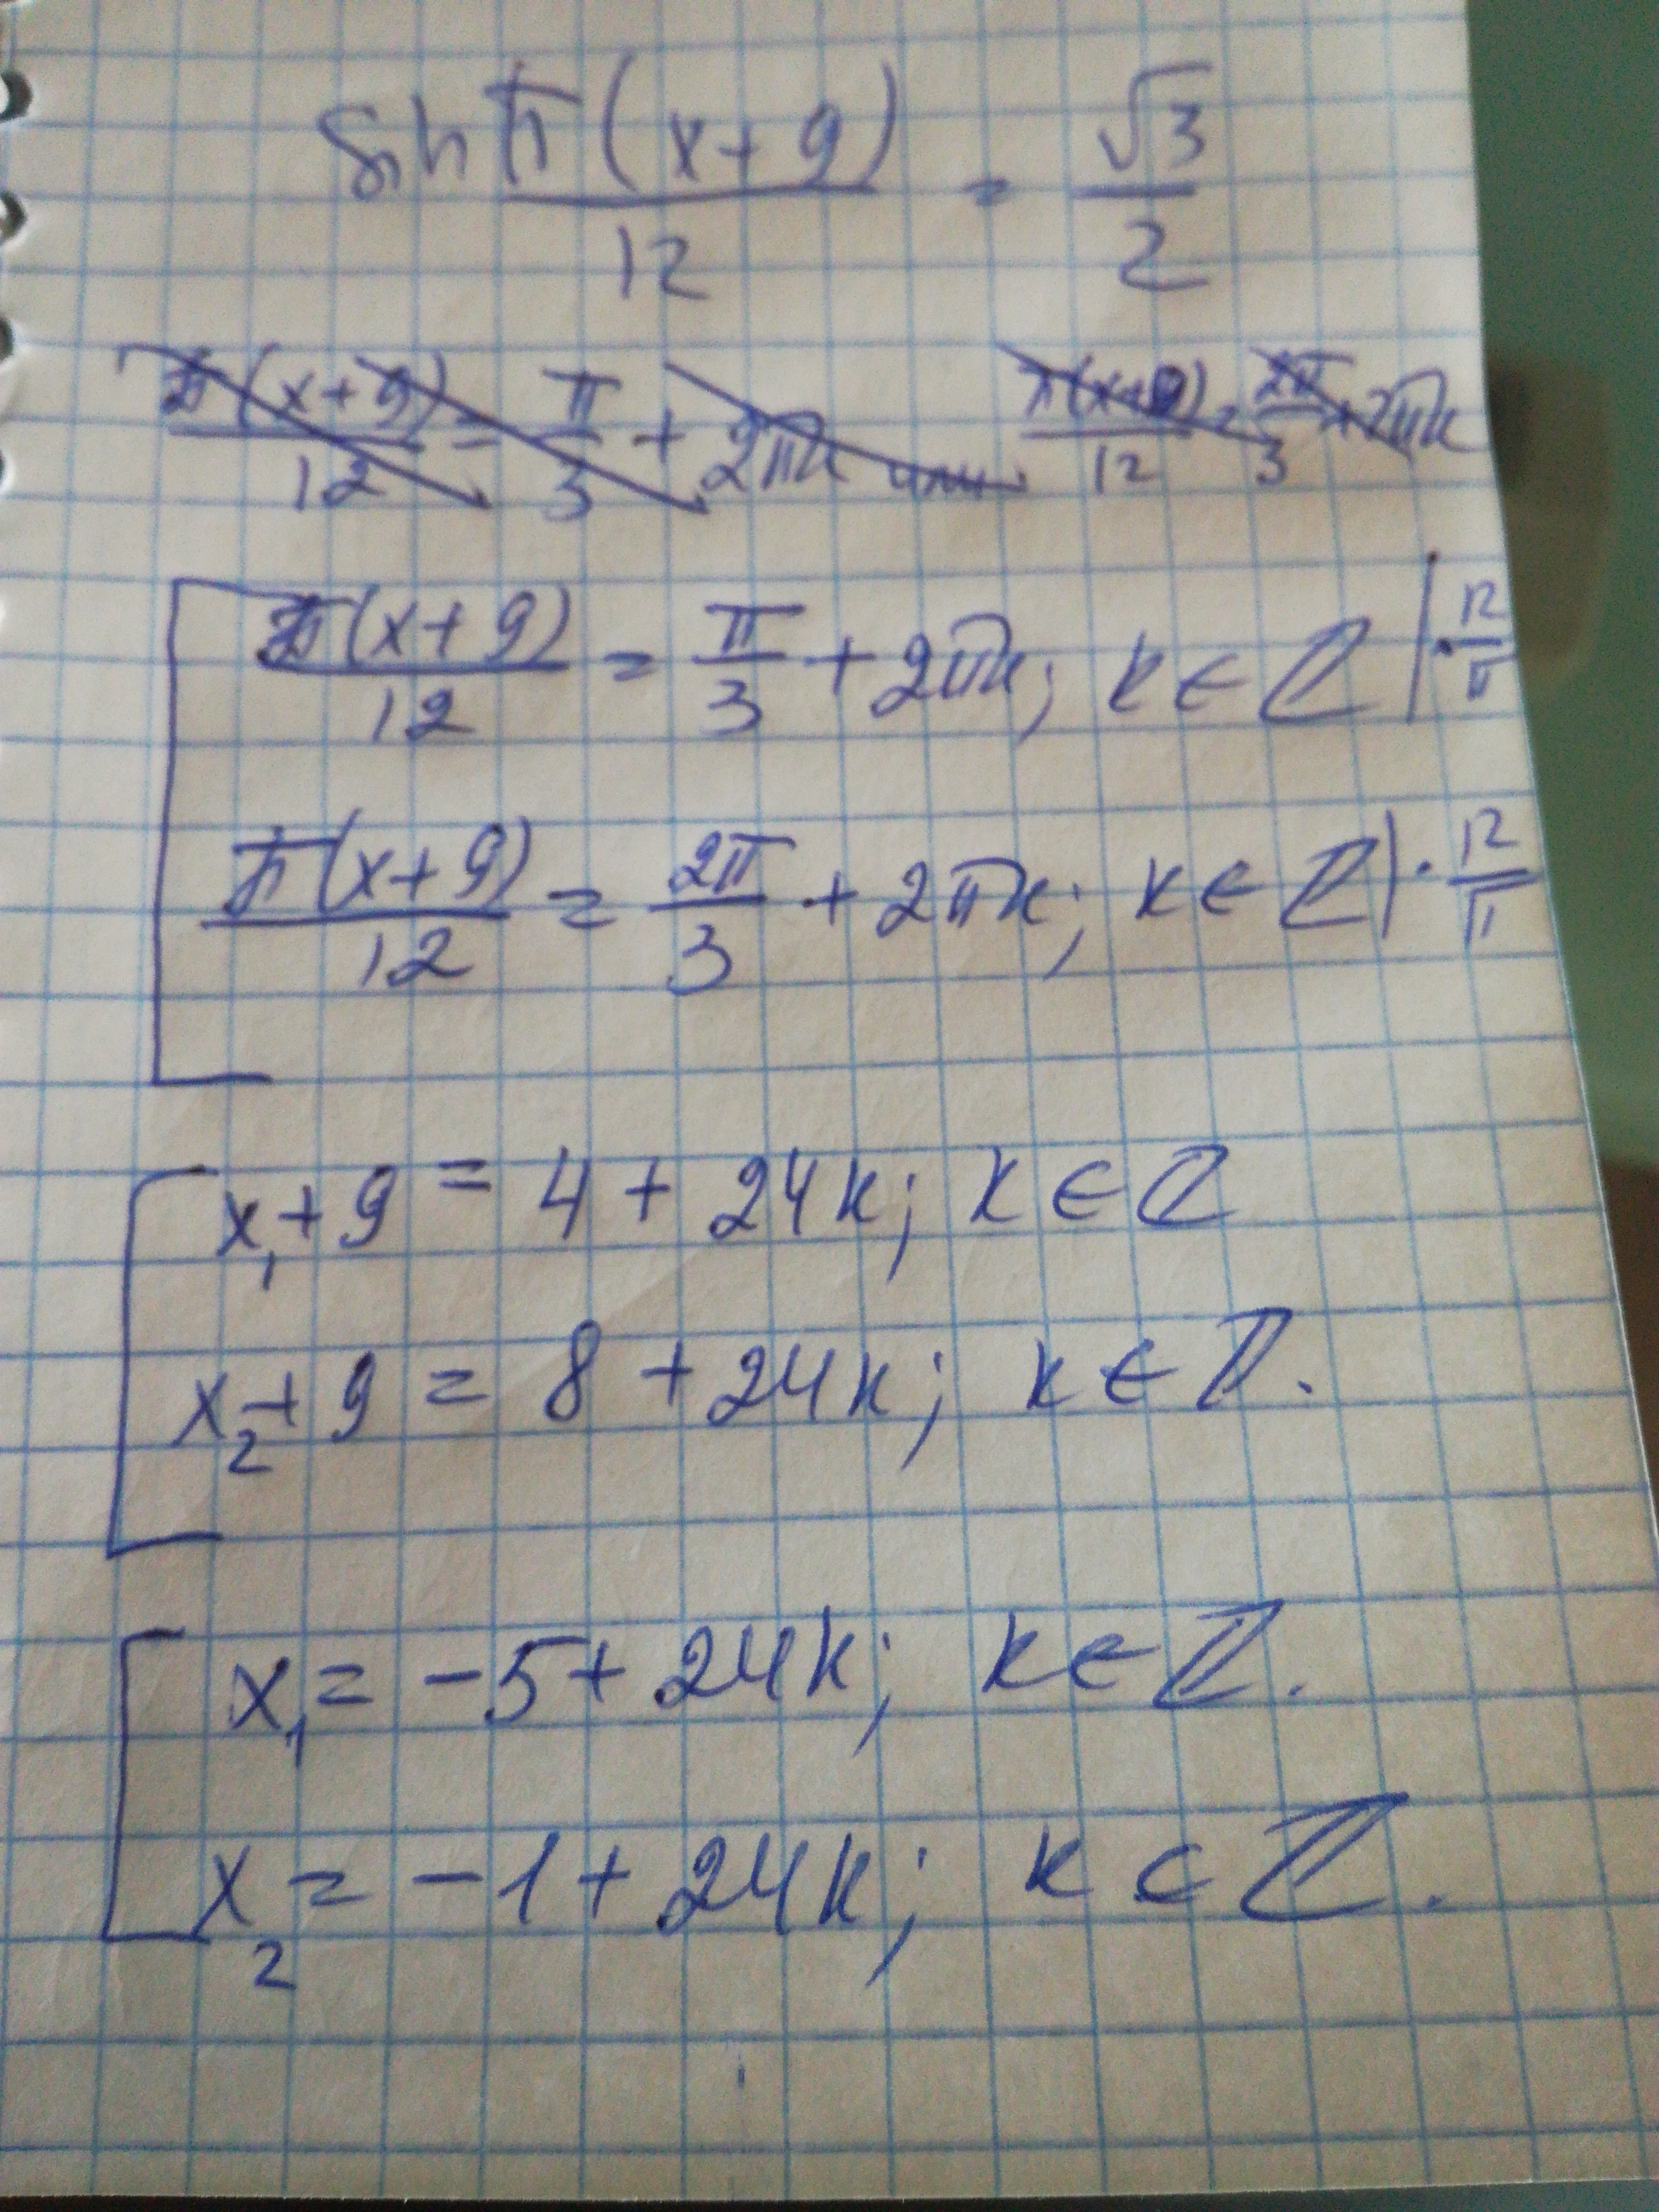 sin π(x+9)/12 = √3/2
π(x+9)/12 = π/3 + 2πk или π(x+9)/12 = 2π/3 + 2πk
π(x+9)/12 = π/3 + 2πk; k ∈ ℤ | · 12/π
π(x+9)/12 = 2π/3 + 2πk; k ∈ ℤ | · 12/π
x₁ + 9 = 4 + 24k; k ∈ ℤ
x₂ + 9 = 8 + 24k; k ∈ ℤ.
x₁ = -5 + 24k; k ∈ ℤ.
x₂ = -1 + 24k; k ∈ ℤ.